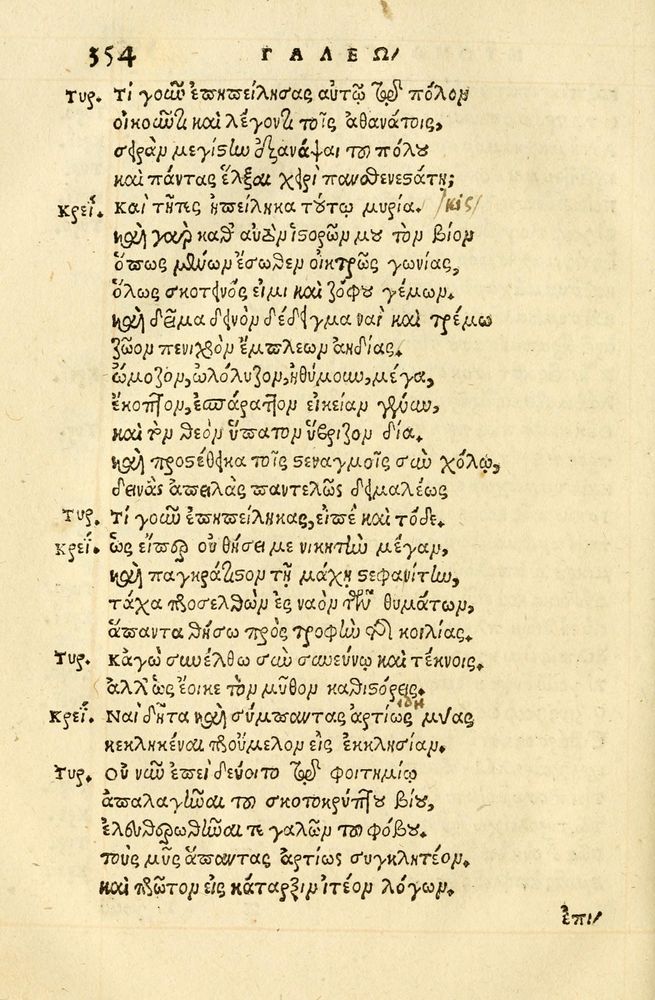 354 ΓΑΛΕΩ/
Τυρ. Τί γοῦν ἐπηπείλησας αὐτῷ τῷ πόλον
οἰκοῦντι καὶ λέγοντι τοῖς ἀθανάτοις,
σειρὰν μεγίστην ἐξανάψαι τοῦ πόλου
καὶ πάντας ἕλξαι χειρὶ πανσθενεστάτῃ;
Κρεΐ. Καί τῆτες ἠπείληκα τούτῳ μυρία. /κις/
καὶ γὰρ καθ' αὑτὸν ἱστορῶν μου τὸν βίον
ὅπως μένων ἔσωθεν οἰκτρῶς γωνίας,
ὅλως σκοτεινός εἰμι καὶ ζόφου γέμων.
καὶ δεῖμα δεινὸν δέδειγμαι καὶ τρέμω
ζῶον πενιχρὸν ἔμπλεων ἀηδίας.
ᾤμοζον, ὠλόλυζον, ἠθύμουν, μέγα,
ἔκοπτον, ἐσπάραττον εἰκείαν γένυν,
καὶ τὸν θεὸν ὕπατον ὕβριζον δία.
καὶ προσέθηκα τοῖς στεναγμοῖς σὺν χόλῳ,
δεινὰς ἀπειλὰς παντελῶς δειμαλέως
Τυρ. Τί γοῦν ἐπηπείληκας, εἰπὲ καὶ τόδε.
Κρεΐ. ὡς εἴπερ οὐ θήσει με νικητὴν μέγαν,
καὶ παγκράτιστον τῇ μάχῃ στεφανίτην,
τάχα προσελθὼν ἐς ναὸν τὸν θυμάτων,
ἅπαντα θήσω πρὸς τροφὴν τῆς κοιλίας.
Τυρ. Κἀγὼ συνέλθω σὺν συνεύνῳ καὶ τέκνοις.
ἀλλ' ὡς ἔοικε τὸν μῦθον καθιστόρεις.
Κρεΐ. Ναὶ δῆτα καὶ σύμπαντας ἀρτίως μύας ιδη
κεκληκέναι προύμελον εἰς ἐκκλησίαν.
Τυρ. Οὐ νοῦν ἐπεὶ δεύοιτο τῷ φοιτημίῳ
ἀπαλαγῆναι τοῦ σκοτοκρύπτου βίου,
ἐλευθερωθῆναι τε γαλῶν τοῦ φόβου.
τοὺς μῦς ἅπαντας ἀρτίως συγκλητέον.
καὶ πρῶτον εἰς κάταρξιν ἰτέον λόγων.
ἐπι/